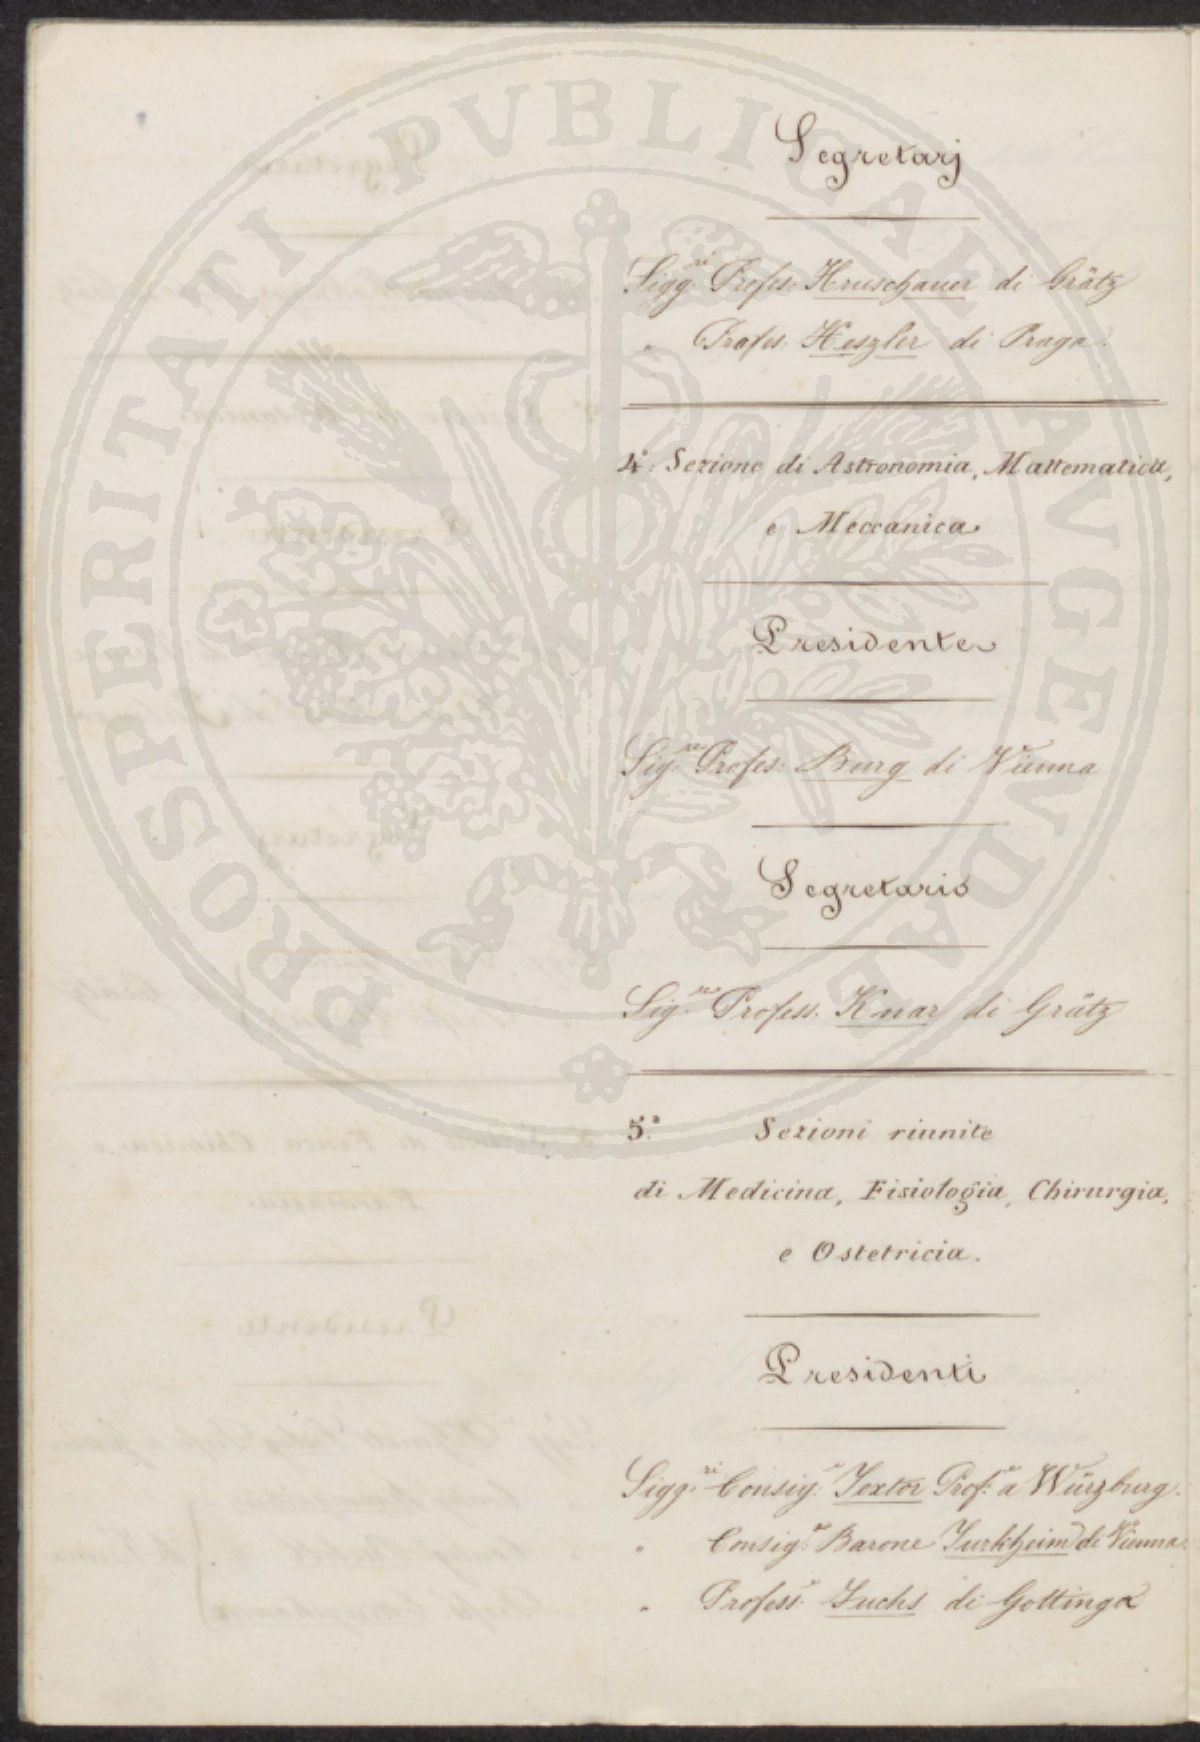 PROSPERITATI PVBLICAE AVGENDAE
Segretarj
Sigg.ri Profes. Hruschauer di Grätz
" Profes. Heszler di Praga.
4.a Sezione di Astronomia, Mattematica,
e Meccanica
Presidente
Sig.re Profes: Burg di Vienna
Segretario
Sig.re Profess. Knar di Grätz
5.a Sezioni riunite
di Medicina, Fisiologia, Chirurgia,
e Ostetricia.
Presidenti
Sigg.ri Consig.e Textor Prof.e a Würzburg.
" Consig.e Barone Turkheim di Vienna
" Profess.e Fuchs di Gottinga